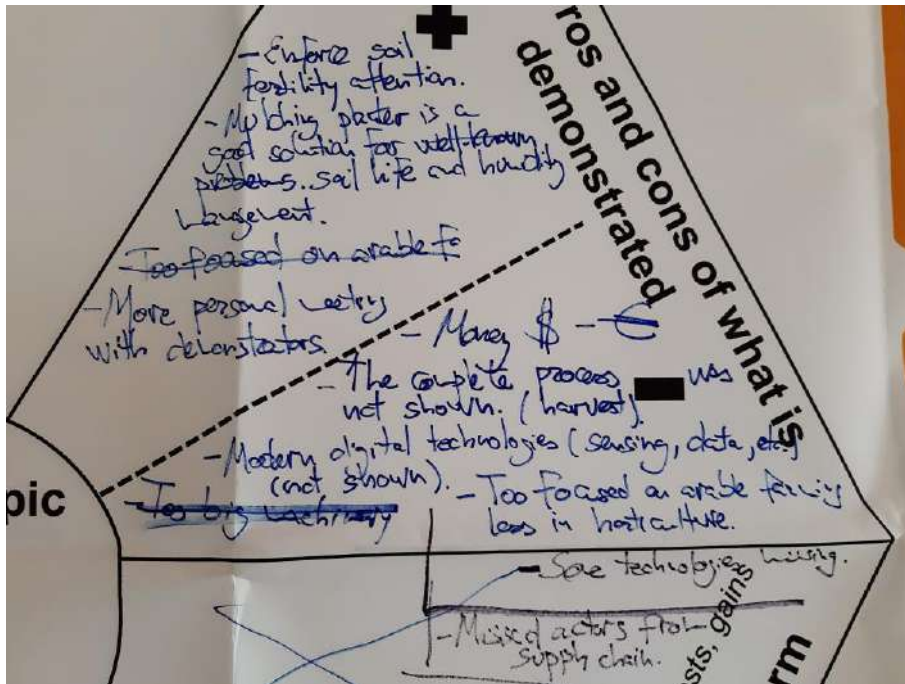 ros and cons of what is
demonstrated
- Enforce soil
fertility attention.
- Mulching planter is a
good solution for well-known
problems. soil life and humidity
management.
- Too focused on arable fa
- More personal meeting
with demonstrators.
- Money $ - €
- The complete process was
not shown. (harvest)
- Modern digital technologies (sensing, data, etc.)
(not shown).
- Too big machinery
- Too focused on arable farming
less in horticulture.
pic
- Some technologies missing.
- Missed actors from
supply chain.
sts, gains
rm